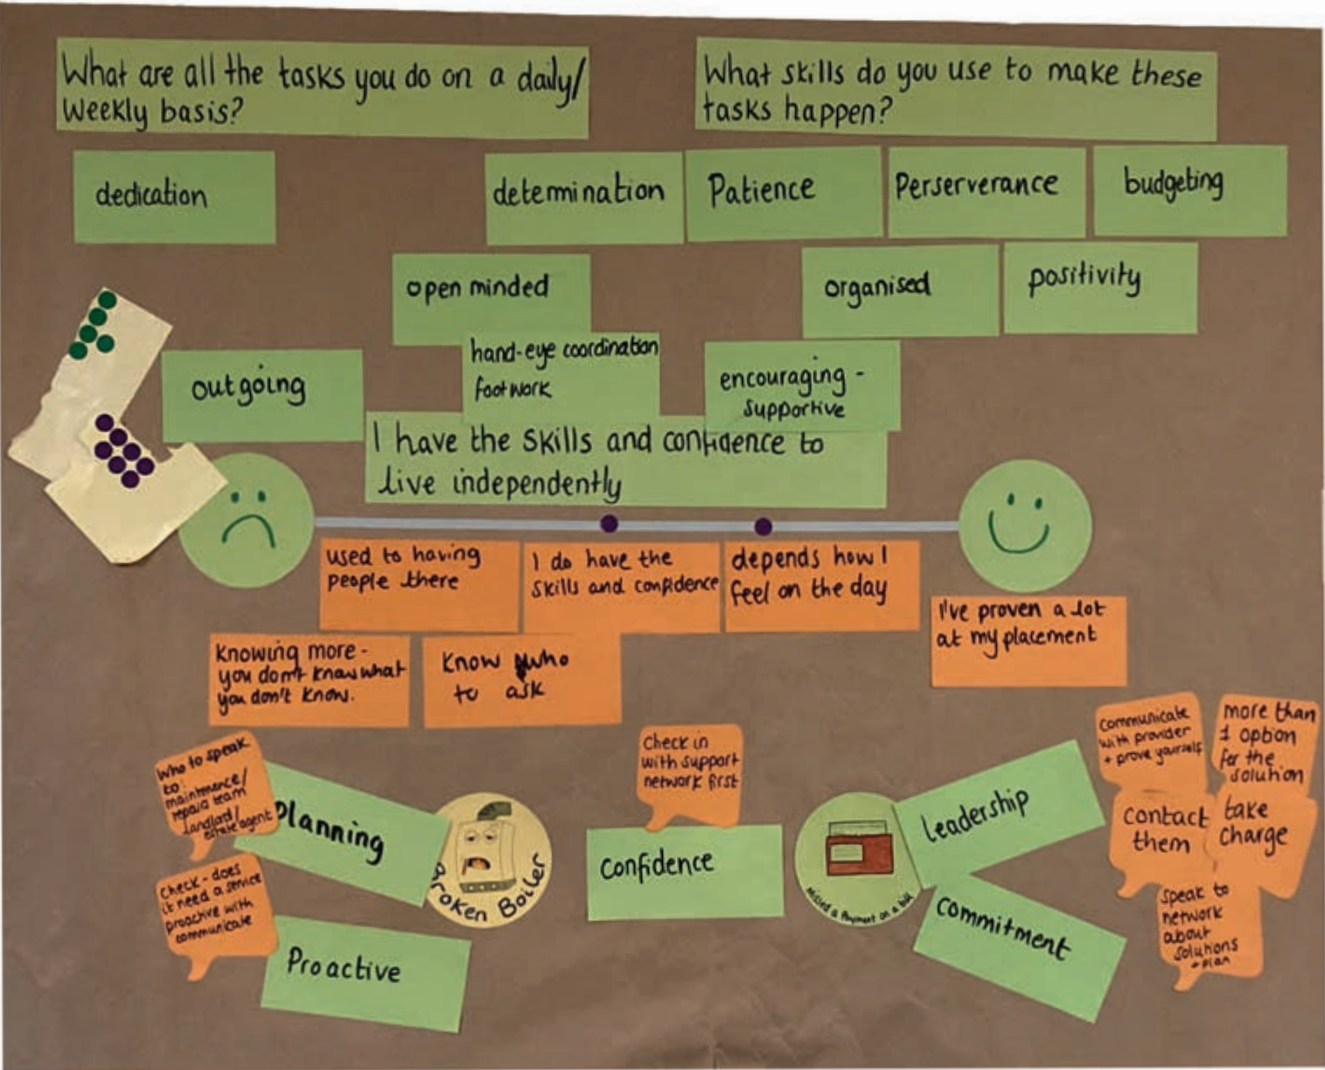 What are all the tasks you do on a daily/
Weekly basis?
What skills do you use to make these
tasks happen?
dedication
determination
Patience
Perserverance
budgeting
open minded
organised
positivity
hand-eye coordination
footwork
outgoing
encouraging -
supportive
I have the skills and confidence to
live independently
used to having
people there
I do have the
skills and confidence
depends how I
feel on the day
I've proven a lot
at my placement
Knowing more -
you don't know what
you don't know.
Know who
to ask
Who to speak
to:
maintenance/
repairs team
landlord/
estate agent
Planning
Broken Boiler
Check - does
it need a service
proactive with
communicate
Proactive
Check in
with support
network first
Confidence
Missed a Payment on a bill
Leadership
commitment
communicate
with provider
+ prove yourself
more than
1 option
for the
solution
contact
them
take
charge
speak to
network
about
solutions
+ plan